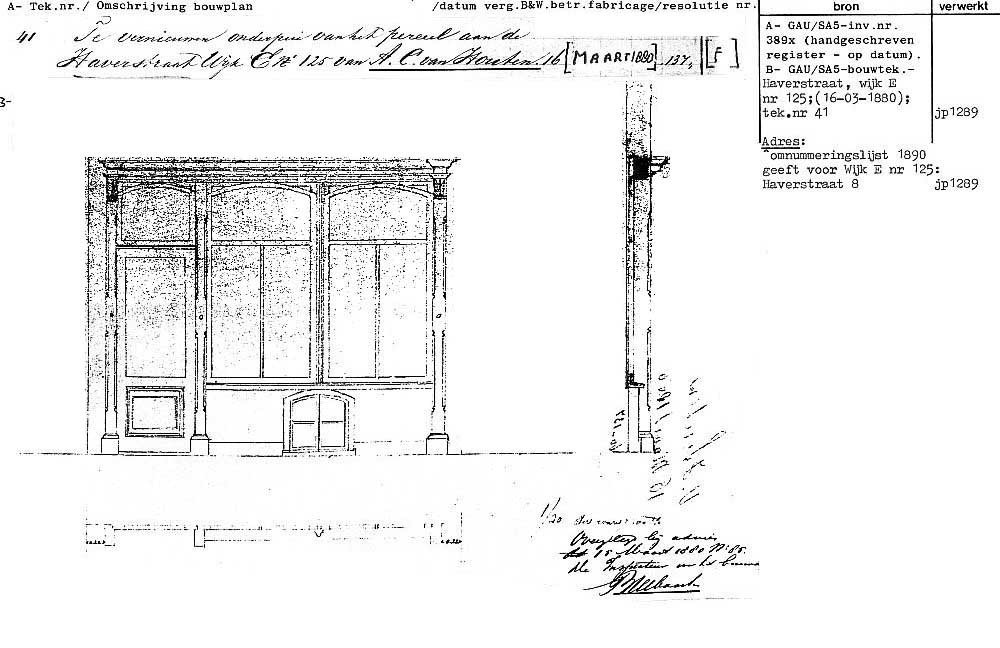 A- Tek.nr./ Omschrijving bouwplan /datum verg.B&W.betr.fabricage/resolutie nr.
41 Te vernieuwen onderpui van het perceel aan de
Haverstraat Wyk E No 125 van A. C. van Houten. 16 [MAART 1880] 137, [F]
B-
bron verwerkt
A- GAU/SA5-inv.nr.
389x (handgeschreven
register - op datum).
B- GAU/SA5-bouwtek.-
Haverstraat, wijk E
nr 125;(16-03-1880);
tek.nr 41 jp1289
Adres:
omnummeringslijst 1890
geeft voor Wijk E nr 125:
Haverstraat 8 jp1289
1/20
Overgelegd bij advies
15 Maart 1880 No 85.
de Inspecteur